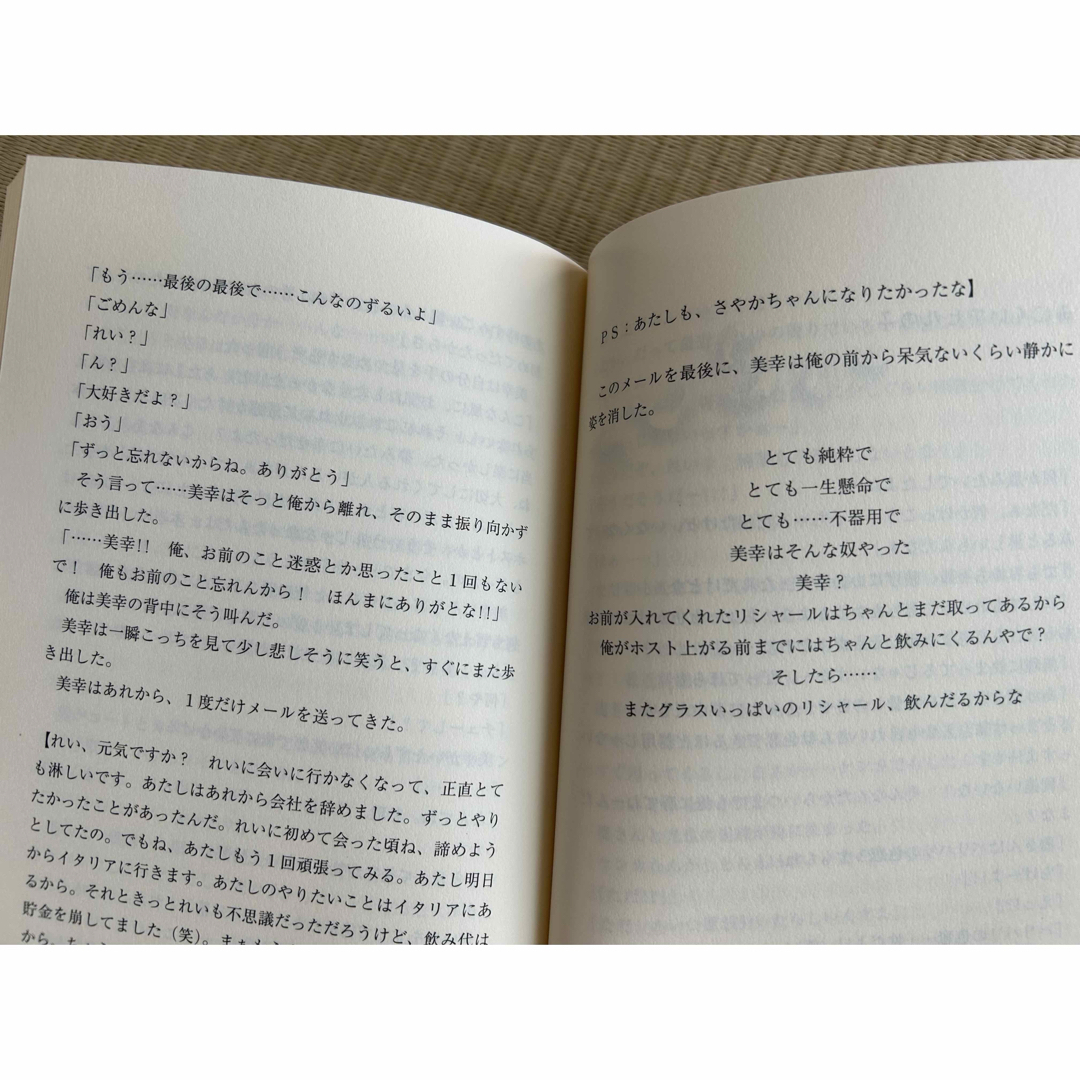 「もう……最後の最後で……こんなのずるいよ」
「ごめんな」
「れい？」
「ん？」
「大好きだよ？」
「おう」
「ずっと忘れないからね。ありがとう」
そう言って……美幸はそっと俺から離れ、そのまま振り向かず
に歩き出した。
「……美幸!!　俺、お前のこと迷惑とか思ったこと１回もない
で！　俺もお前のこと忘れんから！　ほんまにありがとな!!」
俺は美幸の背中にそう叫んだ。
美幸は一瞬こっちを見て少し悲しそうに笑うと、すぐにまた歩
き出した。
美幸はあれから、１度だけメールを送ってきた。
【れい、元気ですか？　れいに会いに行かなくなって、正直とて
も淋しいです。あたしはあれから会社を辞めました。ずっとやり
たかったことがあったんだ。れいに初めて会った頃ね、諦めよう
としてたの。でもね、あたしもう１回頑張ってみる。あたし明日
からイタリアに行きます。あたしのやりたいことはイタリアにあ
るから。それときっとれいも不思議だっただろうけど、飲み代は
貯金を崩してました（笑）。
から。
ＰＳ：あたしも、さやかちゃんになりたかったな】
このメールを最後に、美幸は俺の前から呆気ないくらい静かに
姿を消した。
とても純粋で
とても一生懸命で
とても……不器用で
美幸はそんな奴やった
美幸？
お前が入れてくれたリシャールはちゃんとまだ取ってあるから
俺がホスト上がる前までにはちゃんと飲みにくるんやで？
そしたら……
またグラスいっぱいのリシャール、飲んだるからな